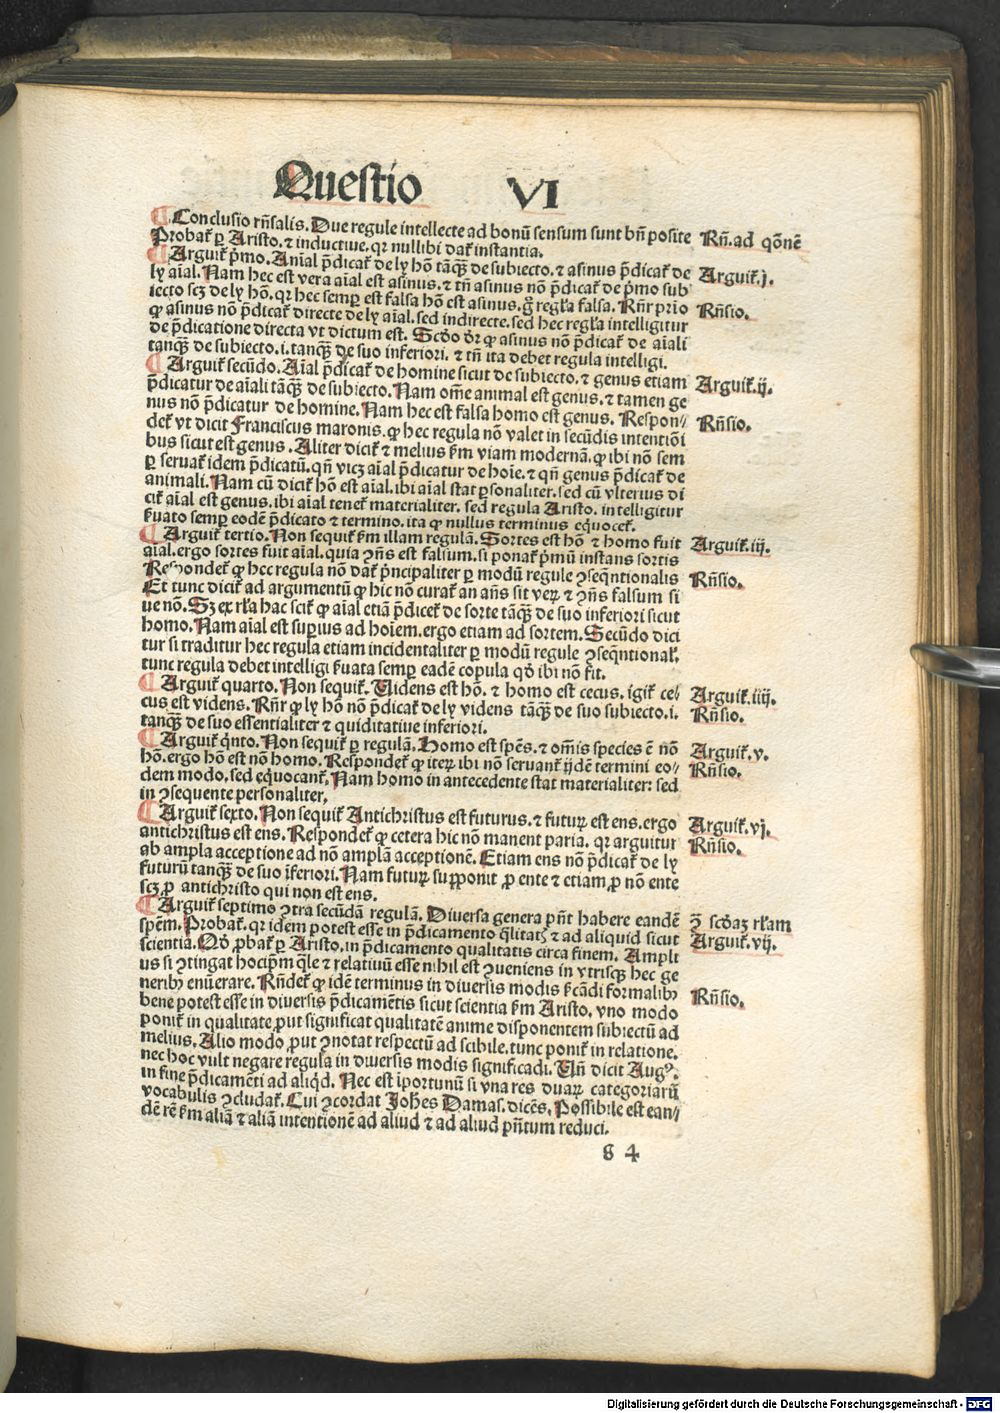 Questio VI
¶ Conclusio rñsalis. Due regule intellecte ad bonū sensum sunt bñ posite
Rñ. ad qōnē
Probat᷑ ꝑ Aristo. ⁊ inductiue. qꝛ nullibi dat᷑ instantia.
¶ Arguit᷑ p̄mo. Aīal p̄dicat᷑ de ly hō tāqꝫ de subiecto. ⁊ asinus p̄dicat᷑ de
Arguit᷑. j.
ly aīal. Nam hec est vera aīal est asinus. ⁊ tñ asinus nō p̄dicat᷑ de p̄mo sub
iecto scꝫ de ly hō. qꝛ hec semꝑ est falsa hō est asinus. g̊ reg̃la falsa. Rñr prīo
Rñsio.
ꝙ asinus nō p̄dicat᷑ directe de ly aīal. sed indirecte. sed hec reg̃la intelligitur
de p̄dicatione directa vt dictum est. Scd̄o dr̄ ꝙ asinus nō p̄dicat᷑ de aīali
tanqꝫ de subiecto. i. tanqꝫ de suo inferiori. ⁊ tñ ita debet regula intelligi.
¶ Arguit᷑ secūdo. Aīal p̄dicat᷑ de homine sicut de subiecto. ⁊ genus etiam
Arguit᷑. ij.
p̄dicatur de aīali tāqꝫ de subiecto. Nam om̄e animal est genus. ⁊ tamen ge
nus nō p̄dicatur de homine. Nam hec est falsa homo est genus. Respon⸗
Rñsio.
det᷑ vt dicit Franciscus maronis. ꝙ hec regula nō valet in secūdis intentiōi
bus sicut est genus. Aliter dicit᷑ ⁊ melius ẜm viam modernā. ꝙ ibi nō sem
ꝑ seruat᷑ idem p̄dicatū. qñ vicꝫ aīal p̄dicatur de hoīe. ⁊ qñ genus p̄dicat᷑ de
animali. Nam cū dicit᷑ hō est aīal. ibi aīal stat ꝑsonaliter. sed cū vlterius di
cit᷑ aīal est genus. ibi aīal tenet᷑ materialiter. sed regula Aristo. intelligitur
ẜuato semꝑ eodē p̄dicato ⁊ termino. ita ꝙ nullus terminus equocet᷑.
¶ Arguit᷑ tertio. Non sequit᷑ ẜm illam regulā. Sortes est hō ⁊ homo fuit
Arguit᷑. iij.
aīal. ergo sortes fuit aīal. quia ꝯñs est falsum. si ponat᷑ p̄mū instans sortis
Respondet᷑ ꝙ hec regula nō dat᷑ p̄ncipaliter ꝑ modū regule ꝯseqñtionalis
Rñsio.
Et tunc dicit᷑ ad argumentū ꝙ hic nō curat᷑ an añs sit veꝝ ⁊ ꝯñs falsum si
ue nō. Sꝫ ex rl̃a hac scit᷑ ꝙ aīal etiā p̄dicet᷑ de sorte tāqꝫ de suo inferiori sicut
homo. Nam aīal est suꝑius ad hoīem. ergo etiam ad sortem. Secūdo dici
tur si traditur hec regula etiam incidentaliter ꝑ modū regule ꝯseqñtional᷑.
tunc regula debet intelligi ẜuata semꝑ eadē copula qd̄ ibi nō fit.
¶ Arguit᷑ quarto. Non sequit᷑. Uidens est hō. ⁊ homo est cecus. igit᷑ ce⸗
Arguit᷑. iiij.
cus est videns. Rñr ꝙ ly hō nō p̄dicat᷑ de ly videns tāqꝫ de suo subiecto. i.
Rñsio.
tanqꝫ de suo essentialiter ⁊ quiditatiue inferiori.
¶ Arguit᷑ qͥnto. Non sequit᷑ ꝑ regulā. Homo est spēs. ⁊ om̄is species ē nō
Arguit᷑. v.
hō. ergo hō est nō homo. Respondet᷑ ꝙ iteꝝ ibi nō seruant᷑ ijdē termini eo⸗
Rñsio.
dem modo, sed eqͥuocant᷑. Nam homo in antecedente stat materialiter: sed
in ꝯsequente personaliter.
¶ Arguit᷑ sexto. Non sequit᷑ Antichristus est futurus. ⁊ futuꝝ est ens. ergo
Arguit᷑. vj.
antichristus est ens. Respondet᷑ ꝙ cetera hic nō manent paria. qꝛ arguitur
Rñsio.
ab ampla acceptione ad nō amplā acceptionē. Etiam ens nō p̄dicat᷑ de ly
futurū tanqꝫ de suo īferiori. Nam futuꝝ supponit ꝓ ente ⁊ etiam ꝓ nō ente
scꝫ ꝓ antichristo qui non est ens.
¶ Arguit᷑ septimo ꝯtra secūdā regulā. Diuersa genera pñt habere eandē
ꝯ̄ scd̄aꝫ rl̃am
spēm. Probat᷑. qꝛ idem potest esse in p̄dicamento qͣlitatꝭ ⁊ ad aliquid sicut
Arguit᷑. vij.
scientia. Qd̄ ꝓbat᷑ ꝑ Aristo. in p̄dicamento qualitatis circa finem. Ampli
us si ꝯtingat hocip̄m qͣle ⁊ relatiuū esse nihil est ꝯueniens in vtrisqꝫ hec ge
neribꝰ enūerare. Rñdet᷑ ꝙ idē terminus in diuersis modis ẜcādi formalibꝰ
Rñsio.
bene potest esse in diuersis p̄dicamētis sicut scientia ẜm Aristo. vno modo
ponit᷑ in qualitate ꝓut significat qualitatē anime disponentem subiectū ad
melius. Alio modo ꝓut ꝯnotat respectū ad scibile. tunc ponit᷑ in relatione.
nec hoc vult negare regula in diuersis modis significādi. Uñ dicit Augꝰ.
in fine p̄dicamēti ad aliqͥd. Nec est īportunū si vna res duaꝝ categoriarū
vocabulis ꝯcludat᷑. Cui ꝯcordat Johēs Damas. dicēs. Possibile est ean⸗
dē rē ẜm aliā ⁊ aliā intentionē ad aliud ⁊ ad aliud pñtum reduci.
g 4
Digitalisierung gefördert durch die Deutsche Forschungsgemeinschaft - DFG